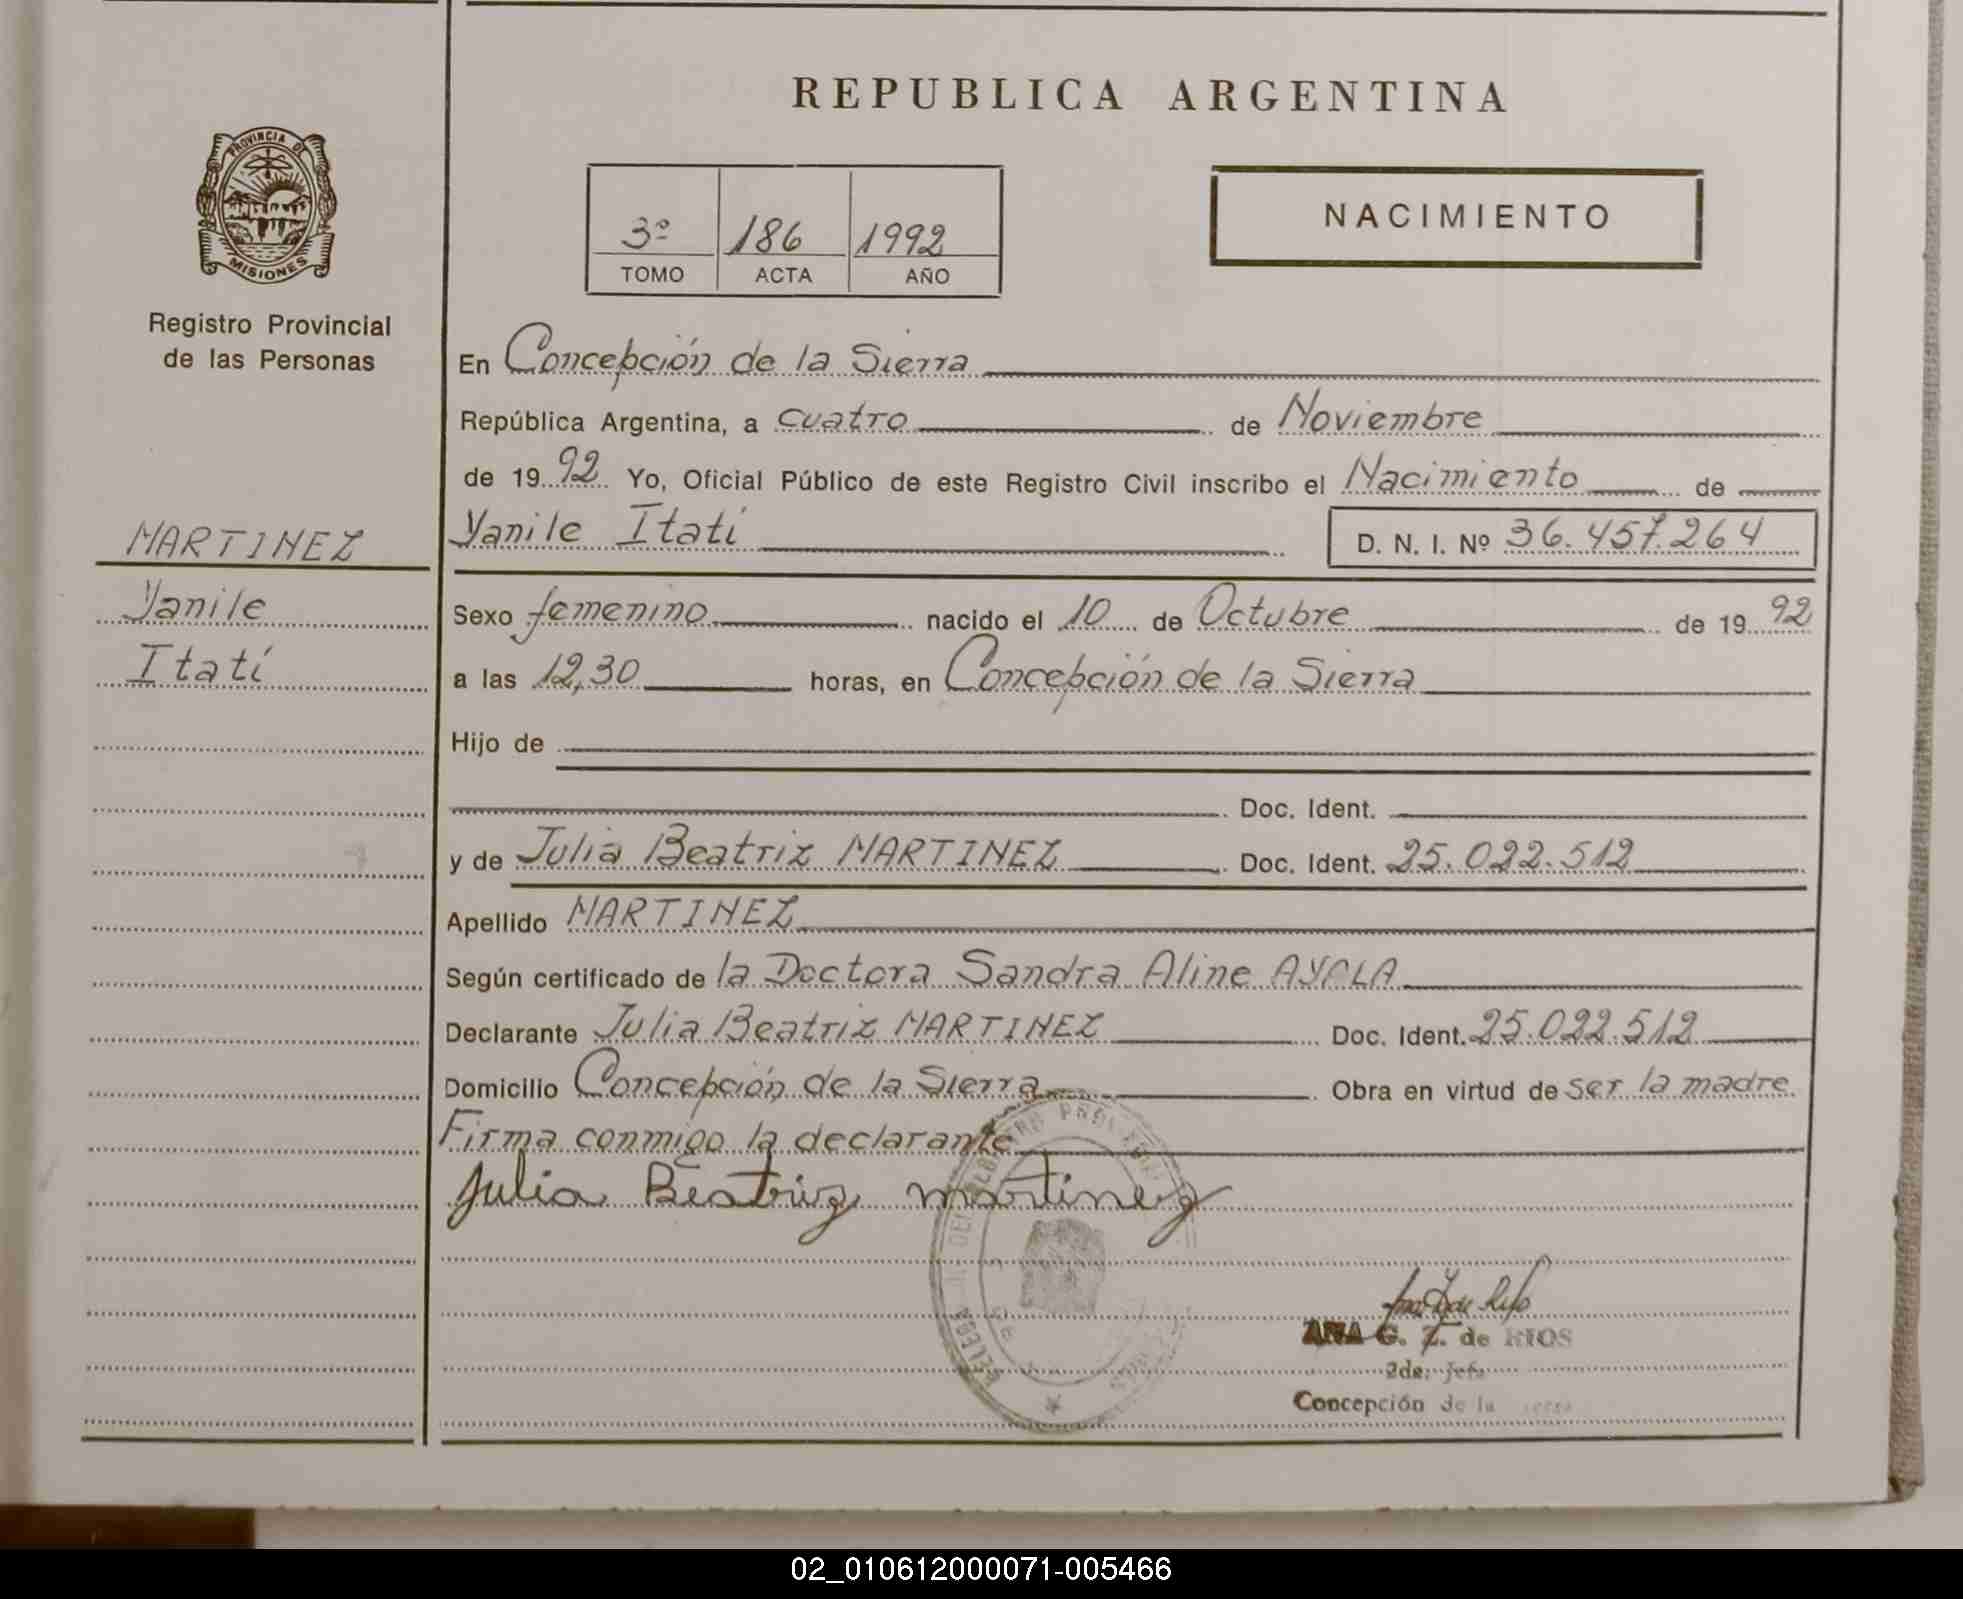 REPUBLICA ARGENTINA
PROVINCIA DE
MISIONES
Registro Provincial
de las Personas
3º 186 1992
TOMO ACTA AÑO
NACIMIENTO
En Concepción de la Sierra
República Argentina, a cuatro de Noviembre
de 1992 Yo, Oficial Público de este Registro Civil inscribo el Nacimiento de
MARTINEZ
Yanile Itatí D. N. I. Nº 36.457.264
Yanile
Sexo femenino nacido el 10 de Octubre de 1992
Itatí
a las 12,30 horas, en Concepción de la Sierra
Hijo de
Doc. Ident.
y de Julia Beatriz MARTINEZ Doc. Ident. 25.022.512
Apellido MARTINEZ
Según certificado de la Doctora Sandra Aline AYALA
Declarante Julia Beatriz MARTINEZ Doc. Ident. 25.022.512
Domicilio Concepción de la Sierra Obra en virtud de ser la madre
Firma conmigo la declarante
Julia Beatriz martinez
ANA G. Z. de RIOS
2da. Jefe
Concepción de la Sierra
02_010612000071-005466